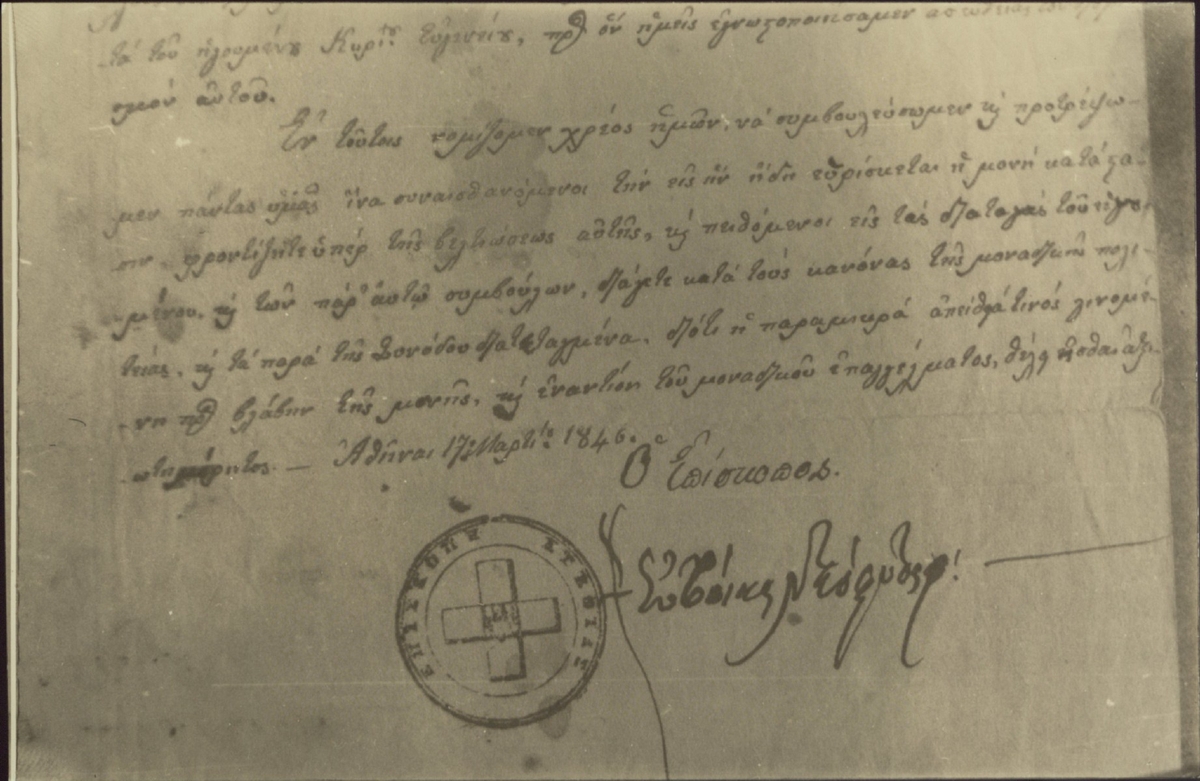 τὰ τοῦ ἡγουμένου Κυρίου Εὐγενείου, πρὸς ὃν ἡμεῖς ἐγνωστοποιήσαμεν
αὐτοῦ.
Ἐν τούτοις νομίζομεν χρέος ἡμῶν, νὰ συμβουλεύσωμεν κὶ προτρέψω-
μεν πάντας ὑμᾶς ἵνα συναισθανόμενοι τὴν εἰς ἣν ἤδη εὑρίσκεται ἡ μονὴ κατάστα-
σιν φροντίζητε ὑπὲρ τῆς βελτιώσεως αὐτῆς, κὶ πειθόμενοι εἰς τὰς διαταγὰς τοῦ ἡγου-
μένου, κὶ τῶν παρ' αὐτῷ συμβούλων, διάγετε κατὰ τοὺς κανόνας τῆς μοναδικῆς πολι-
τείας, κὶ τὰ παρὰ τῆς Συνόδου διατεταγμένα, διότι ἡ παραμικρὰ ἀπείθεια τινὸς γινομέ-
νη πρὸς βλάβην τῆς μονῆς, κὶ ἐναντίον τοῦ μοναδικοῦ ἐπαγγέλματος, θέλει εἶσθαι ἀξι-
ωτιμώρητος. — Ἀθῆναι 17: Μαρτίο: 1846.
Ὁ Ἐπίσκοπος.
Εὐβοίας Νεόφυτος!
ΕΠΙΣΚΟΠΗ ΕΥΒΟΙΑΣ